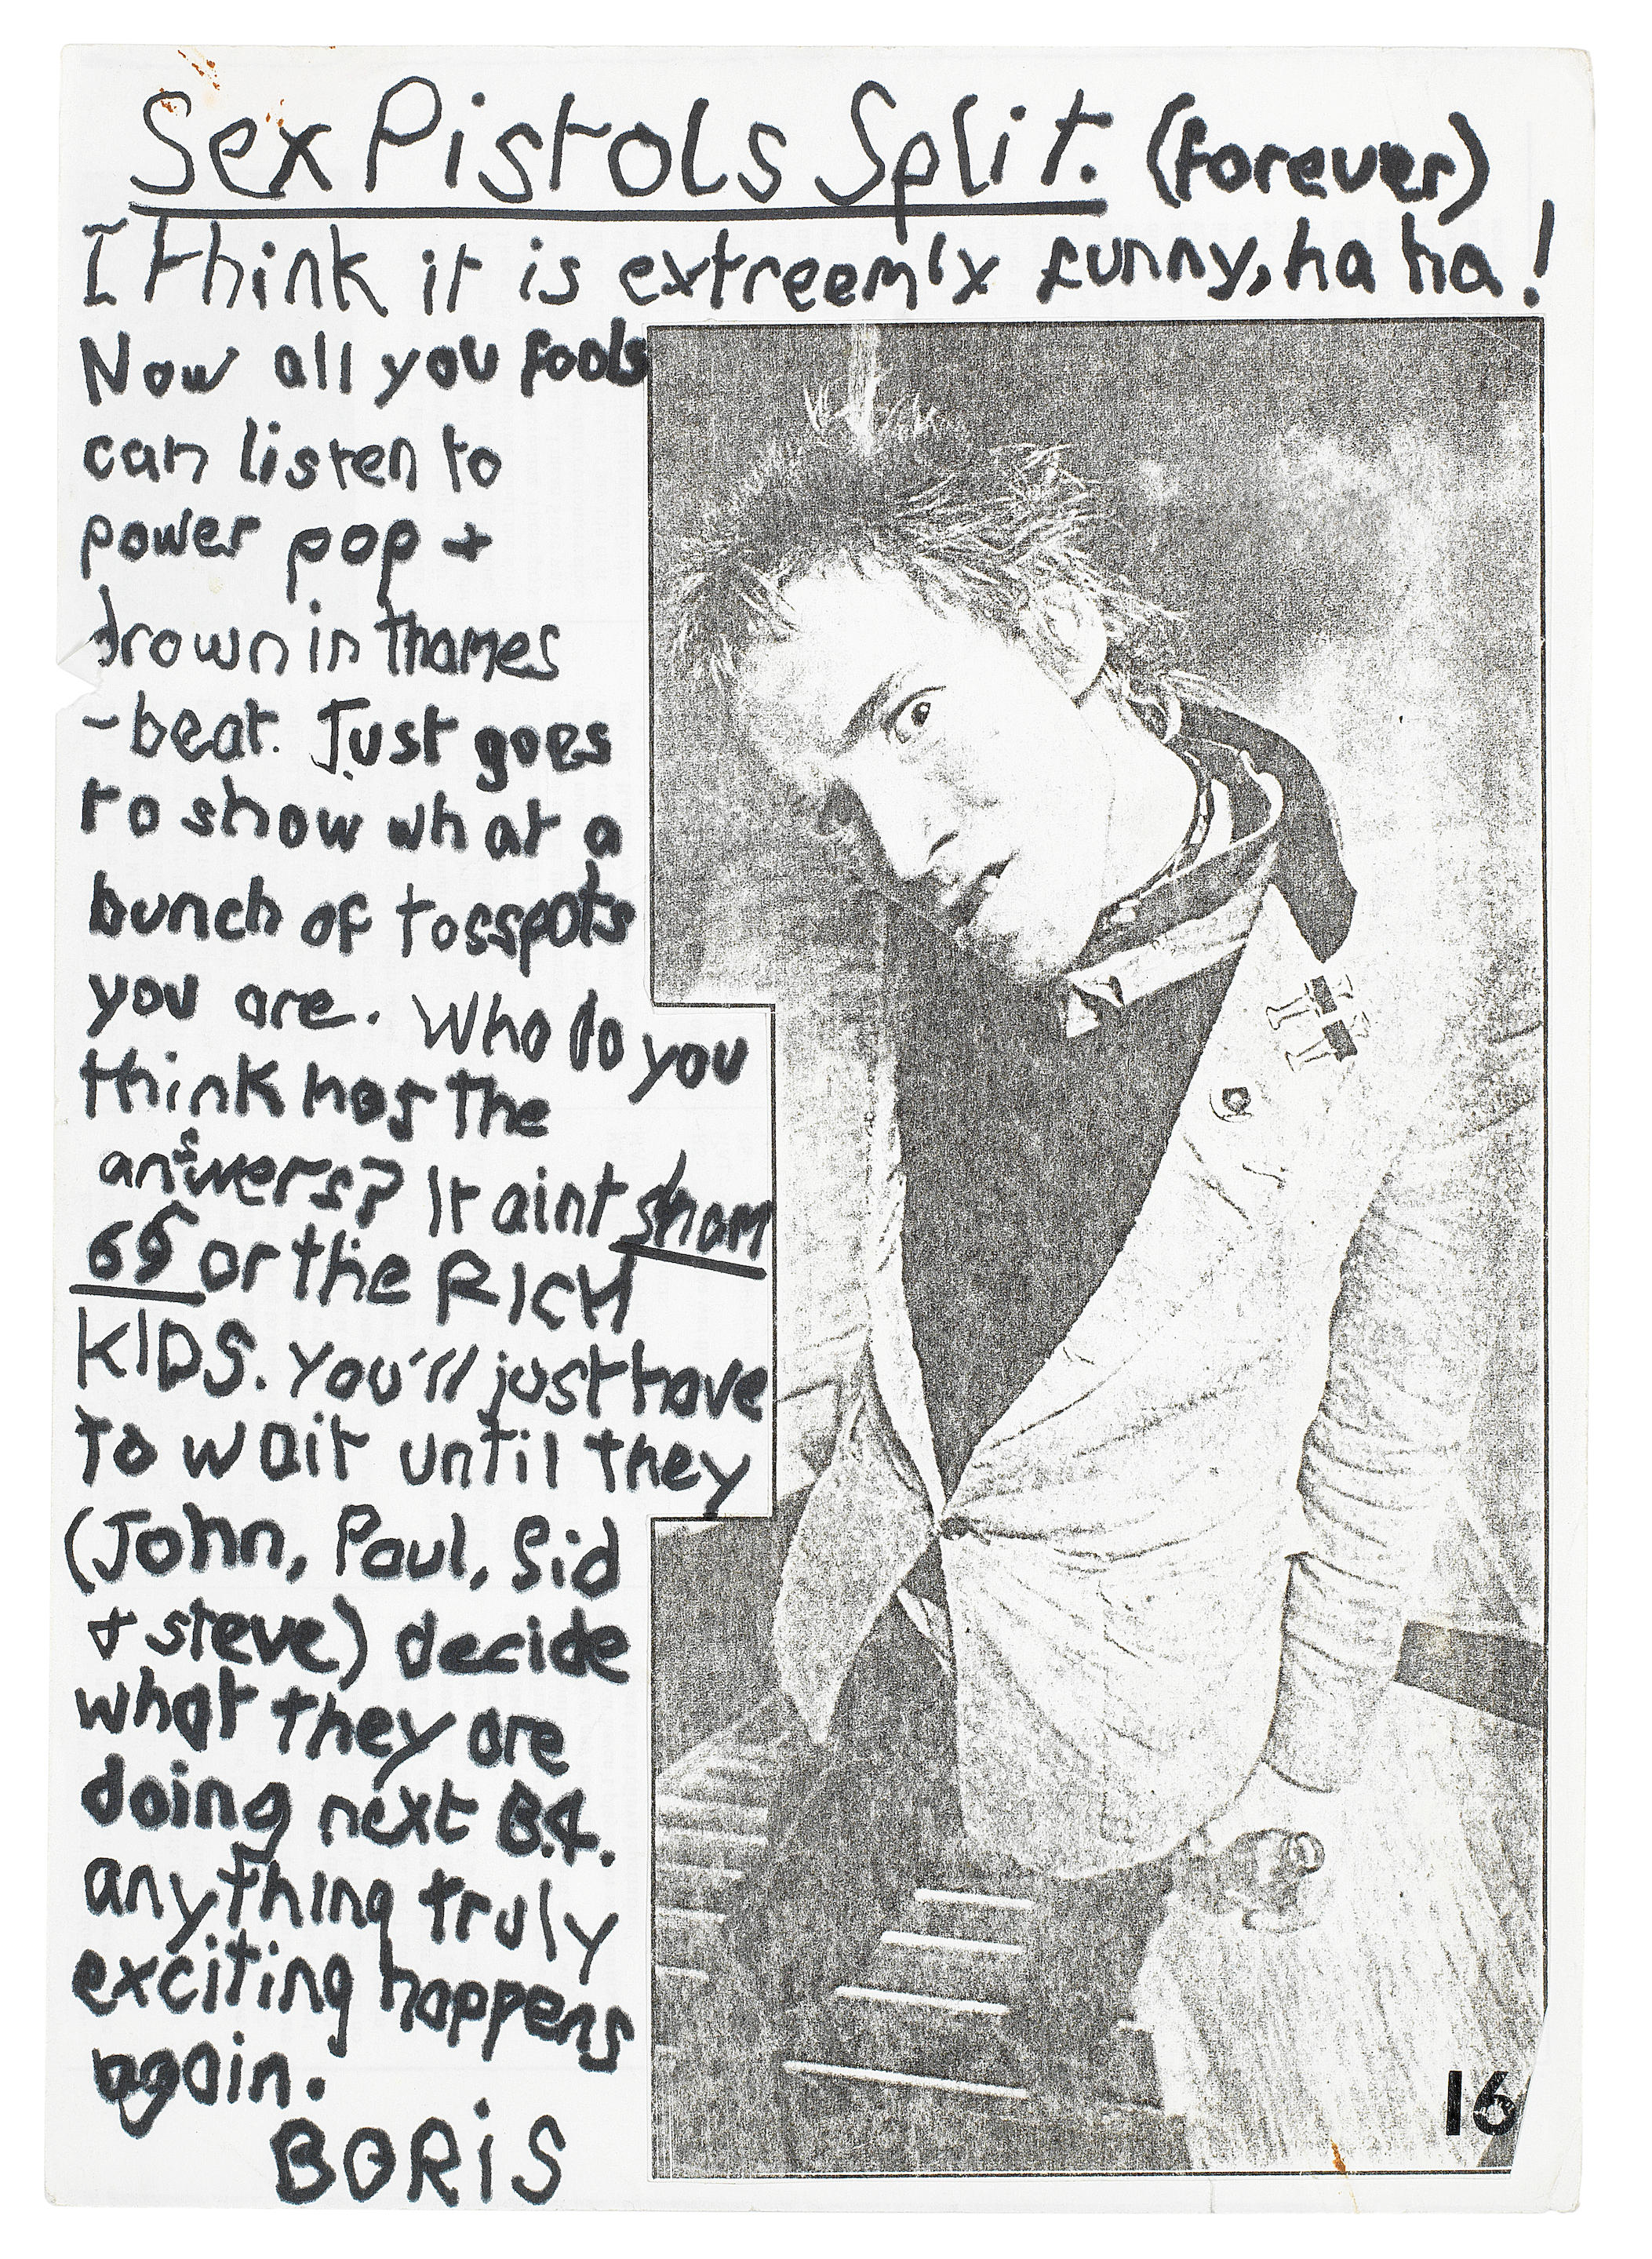 Sex Pistols Split. (forever)
I think it is extreemly funny, ha ha!
Now all you fools
can listen to
power pop +
drown in thames
-beat. Just goes
to show what a
bunch of tosspots
you are. Who do you
think has the
answers? It aint sham
69 or the RICH
KIDS. You'll just have
to wait until they
(John, Paul, Sid
+ steve) decide
what they are
doing next B.4.
anything truly
exciting happens
again.
BORIS
16